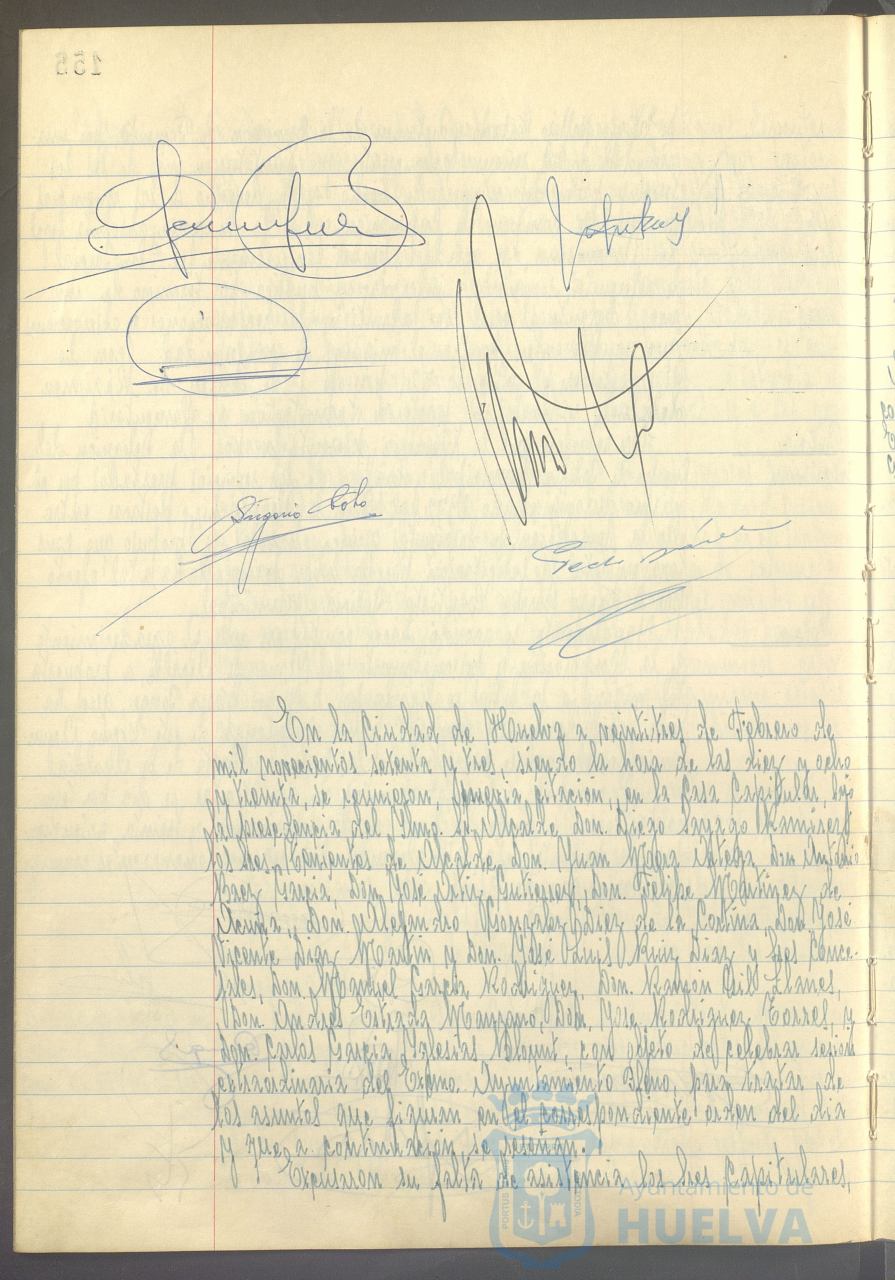 155
Gregorio Soto
En la Ciudad de Huelva a veintitres de Febrero de
mil novecientos setenta y tres, siendo la hora de las diez y ocho
y treinta, se reunieron, previa citación, en la Casa Capitular, bajo
la presidencia del Iltmo. Sr. Alcalde Don Diego Sayago Ramirez
los Sres. Tenientes de Alcalde, Don Juan Mogra Don Antonio
Baez Garcia, Don José Ortiz Gutierrez, Don Felipe Martinez de
Acuña, Don Alejandro Gonzalez Diez de la Cortina, Don José
Vicente Diaz Martin y Don José Luis Ruiz Diaz y Sres Conce-
jales, Don Manuel Garcia Rodriguez, Don Ramon Llanes,
Don Andrés Estrada Manzano, Don Jose Rodriguez Torres, y
don Carlos Garcia Yglesias, con objeto de celebrar sesión
extraordinaria del Excmo. Ayuntamiento Pleno, para tratar de
los asuntos que figuran en el correspondiente orden del dia
y que a continuación, se reseñan.
Excusaron su falta de asistencia los Sres Capitulares,
Ayuntamiento de
HUELVA
PORTUS